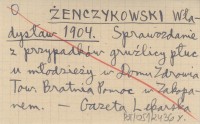 ŻENCZYKOWSKI Wła-
dysław 1904. Sprawozdanie
z przypadków gruźlicy płuc
u młodzieży w Domu Zdrowia
Tow. Bratnia Pomoc w Zakopa-
nem. — Gazeta Lekarska